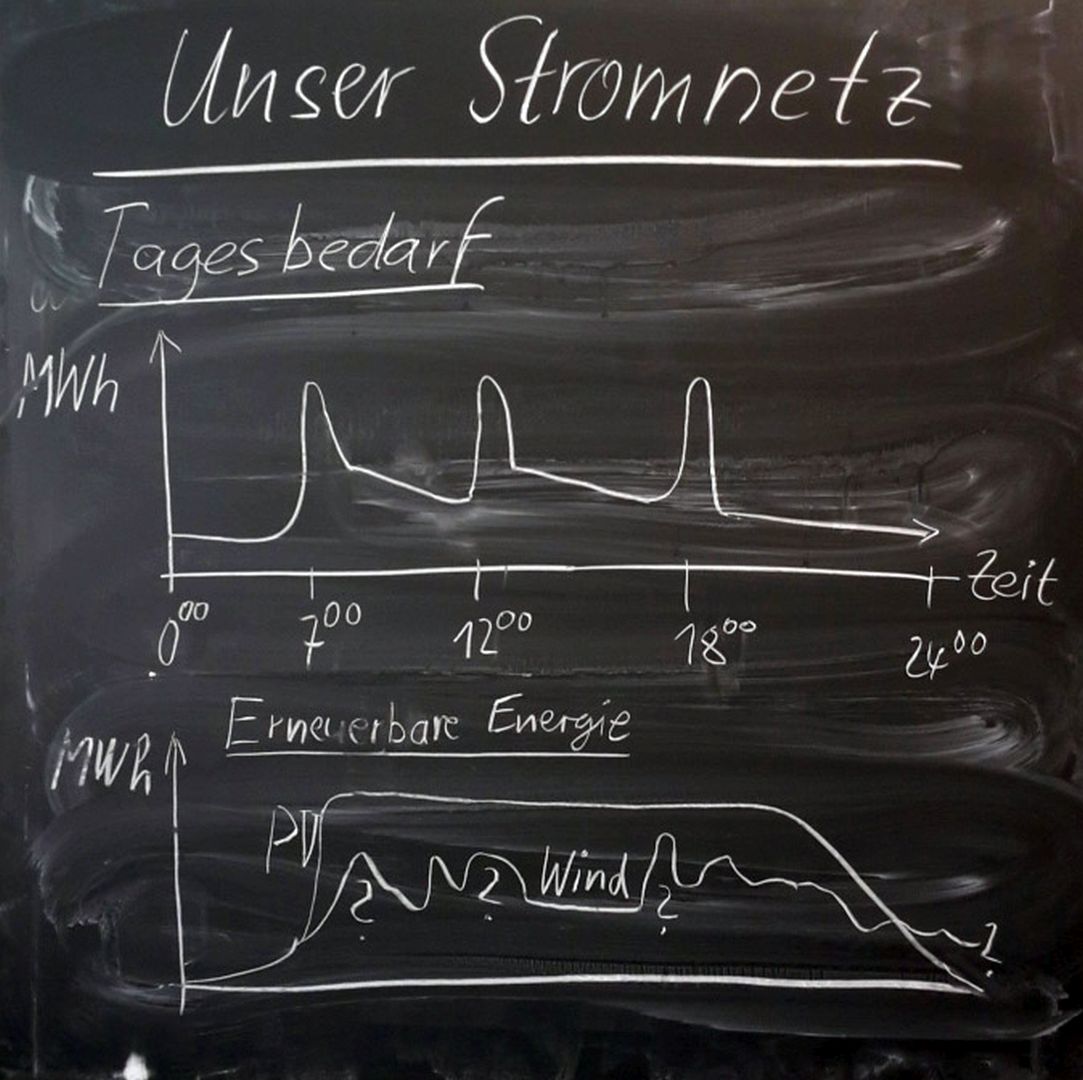 Unser Stromnetz
Tagesbedarf
MWh
Zeit
0⁰⁰ 7⁰⁰ 12⁰⁰ 18⁰⁰ 24⁰⁰
Erneuerbare Energie
MWh
PV
? ? Wind ? ?